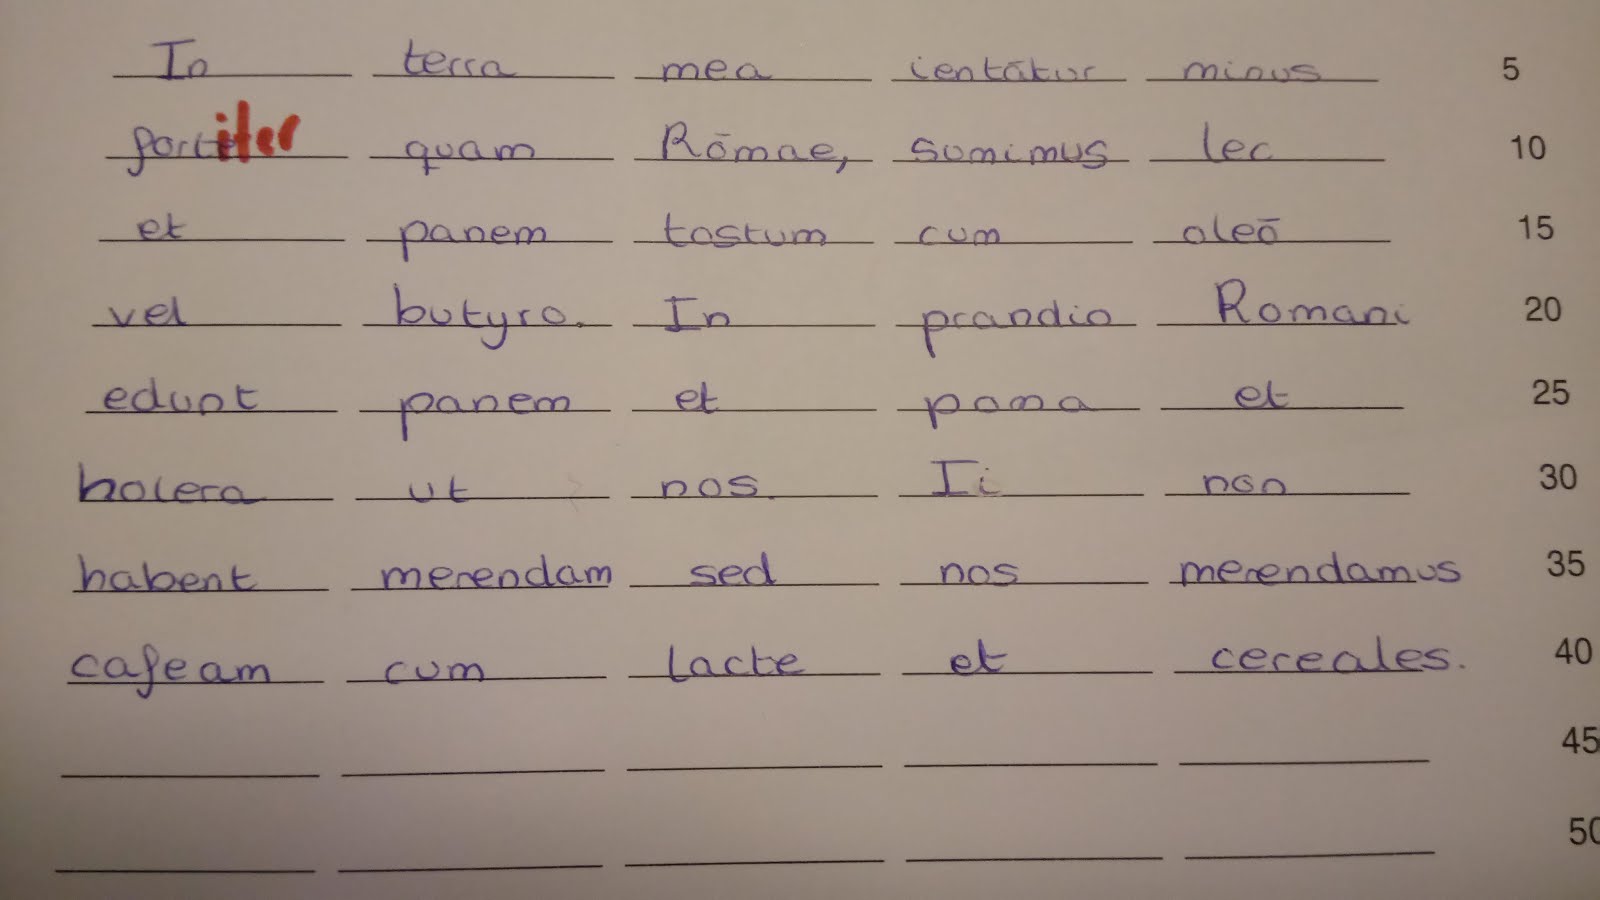 In terra mea ientātur minus 5
fortiter quam Rōmae, sumimus lec 10
et panem tostum cum oleō 15
vel butyro. In prandio Romani 20
edunt panem et poma et 25
holera ut nos. Ii non 30
habent merendam sed nos merendamus 35
cafeam cum lacte et cereales. 40
45
50